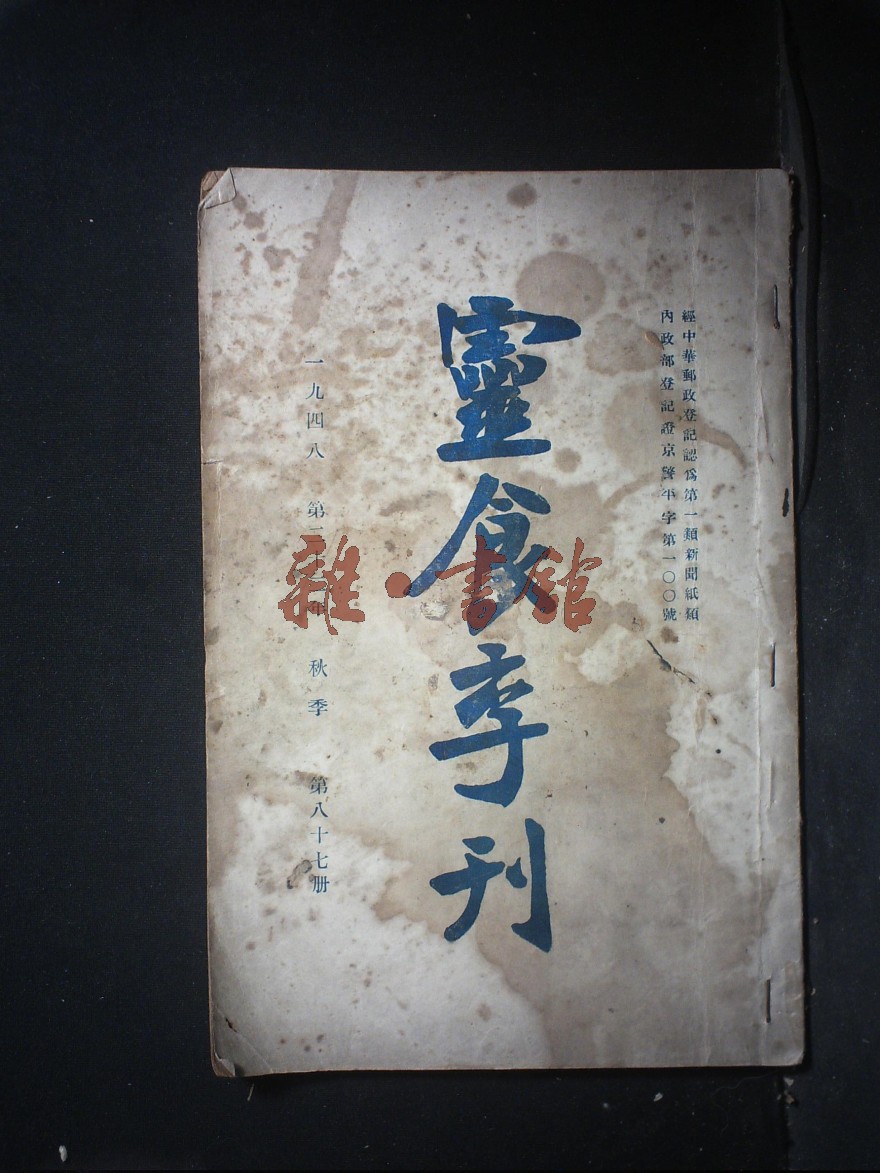 經中華郵政登記認爲第一類新聞紙類
內政部登記證京警平字第一〇〇號
靈食季刊
一九四八 第 年 秋季 第八十七册
雜・書館